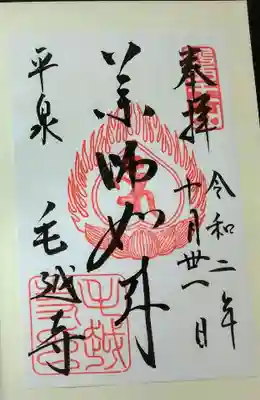 奉拝
令和二年
十月卅一日
薬師如来
平泉
毛越寺